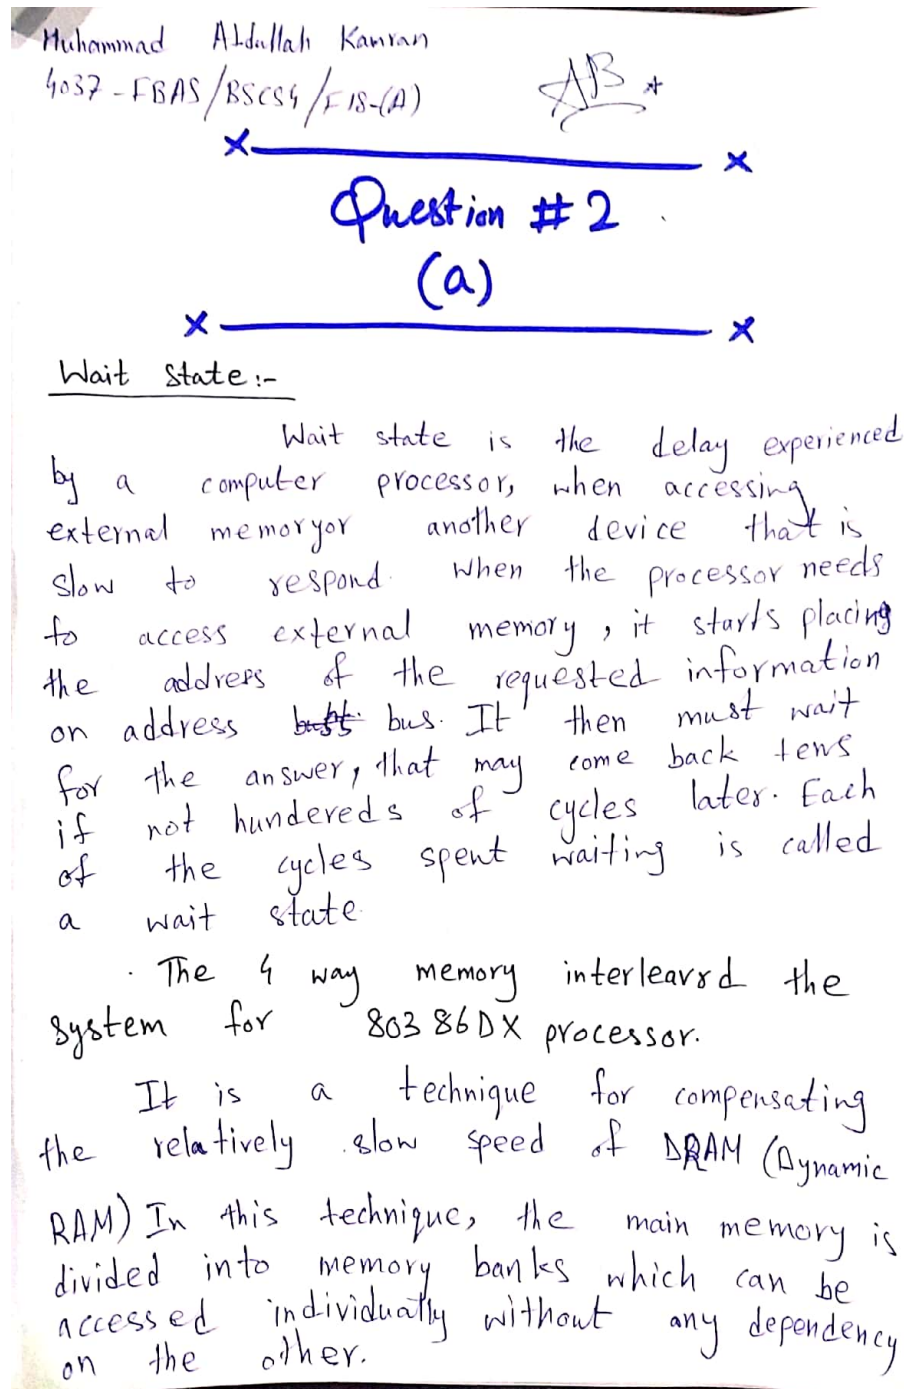 Muhammad Abdullah Kamran
4037-FBAS/BSCS4/F18-(A)
AB
Question #2
(a)
Wait state:-
Wait state is the delay experienced
by a computer processor, when accessing
external memoryor another device that is
slow to respond. When the processor needs
to access external memory, it starts placing
the address of the requested information
on address bus. It then must wait
for the answer, that may come back tens
if not hundereds of cycles later. Each
of the cycles spent waiting is called
a wait state
. The 4 way memory interleaved the
system for 80386DX processor.
It is a technique for compensating
the relatively slow speed of DRAM (Dynamic
RAM) In this technique, the main memory is
divided into memory banks which can be
accessed individually without any dependency
on the other.